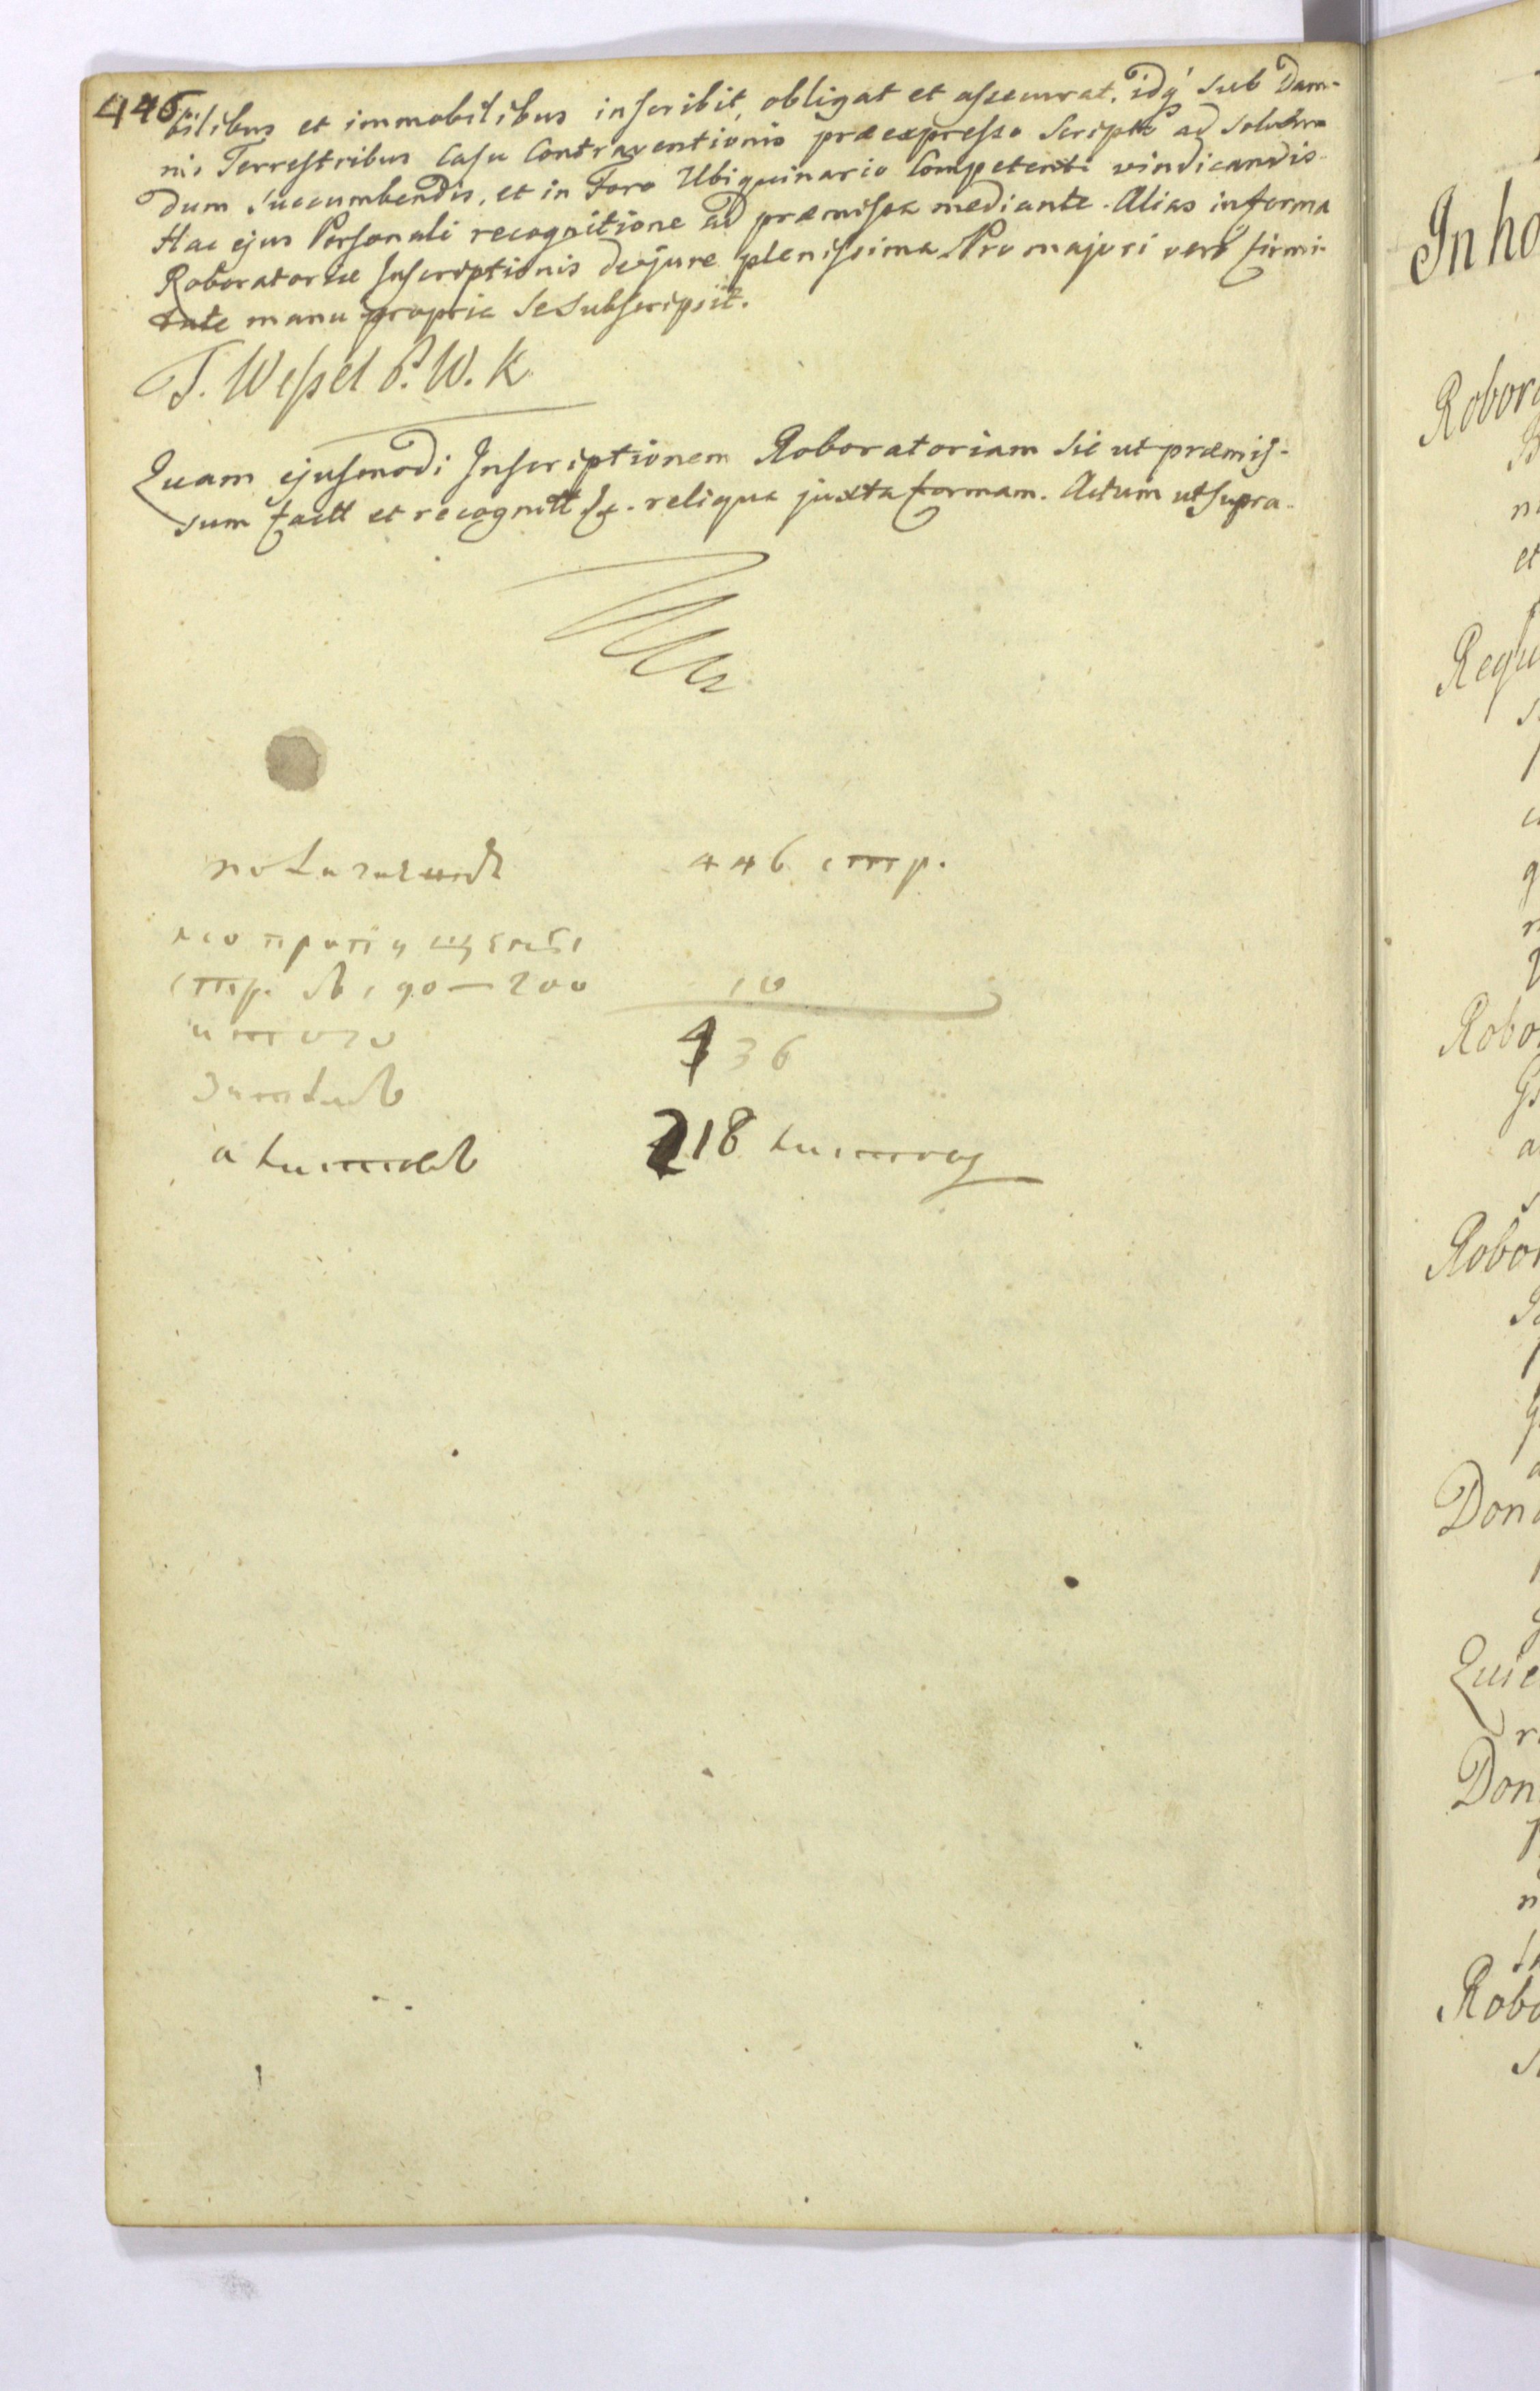 446
bilibus et immobilibus inscribit, obligat et assecurat, idq́ sub Dam-
nis Terrestribus Casu Contraventionis præexpresso Scripto ad solven-
dum succumbendis, et in Foro Ubiquinario Competenti vindicandis.
Hac ejus Personali recognitione ad præmissa mediante. Alias in forma
Roboratoriæ Inscriptionis de jure plenissima. Pro majori vero firmi-
tate manu propria se subscripsit.
T. Wessel P. W. K.
Quam ejusmodi Inscriptionem Roboratoriam sic ut præmis-
sum facit et recognitt &. reliqua juxta formam. Actum ut supra.
446 стр.
пропущены
стр. 190 — 200 10
итого 436
а листовъ 218 листовъ
In ho
Robor
n
et
Requ
Robo
Robor
Don
Quie
Don
Robo